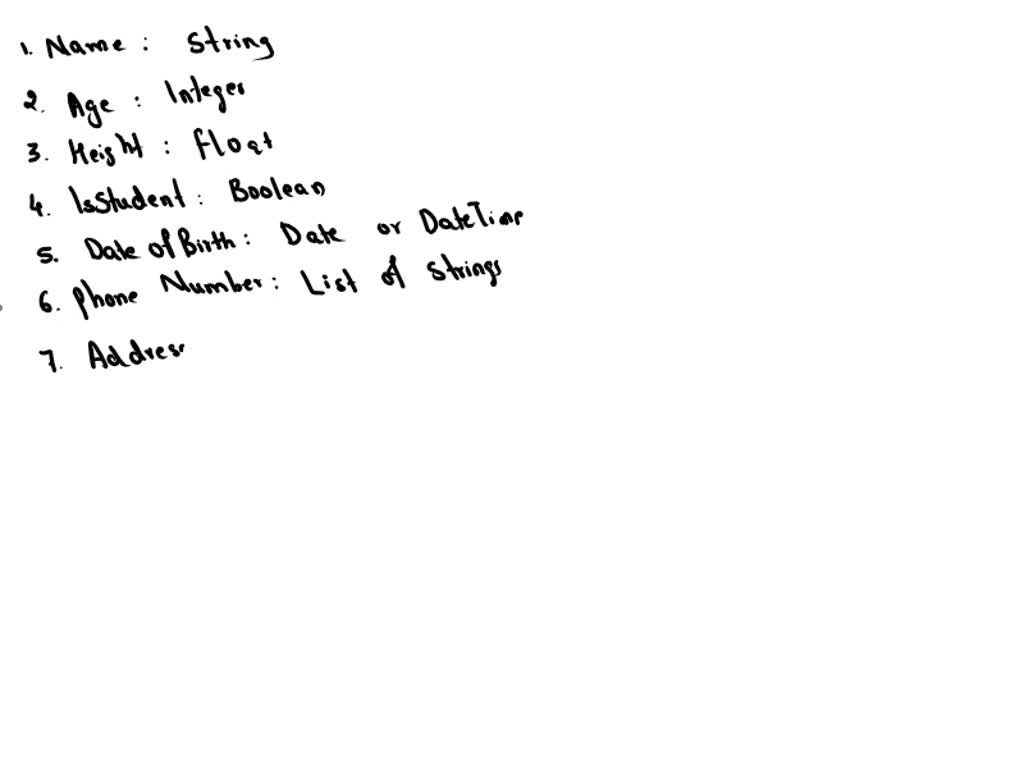 1. Name : String
2. Age : Integer
3. Height : float
4. IsStudent : Boolean
5. Date of Birth : Date or DateTime
6. Phone Number : List of Strings
7. Address